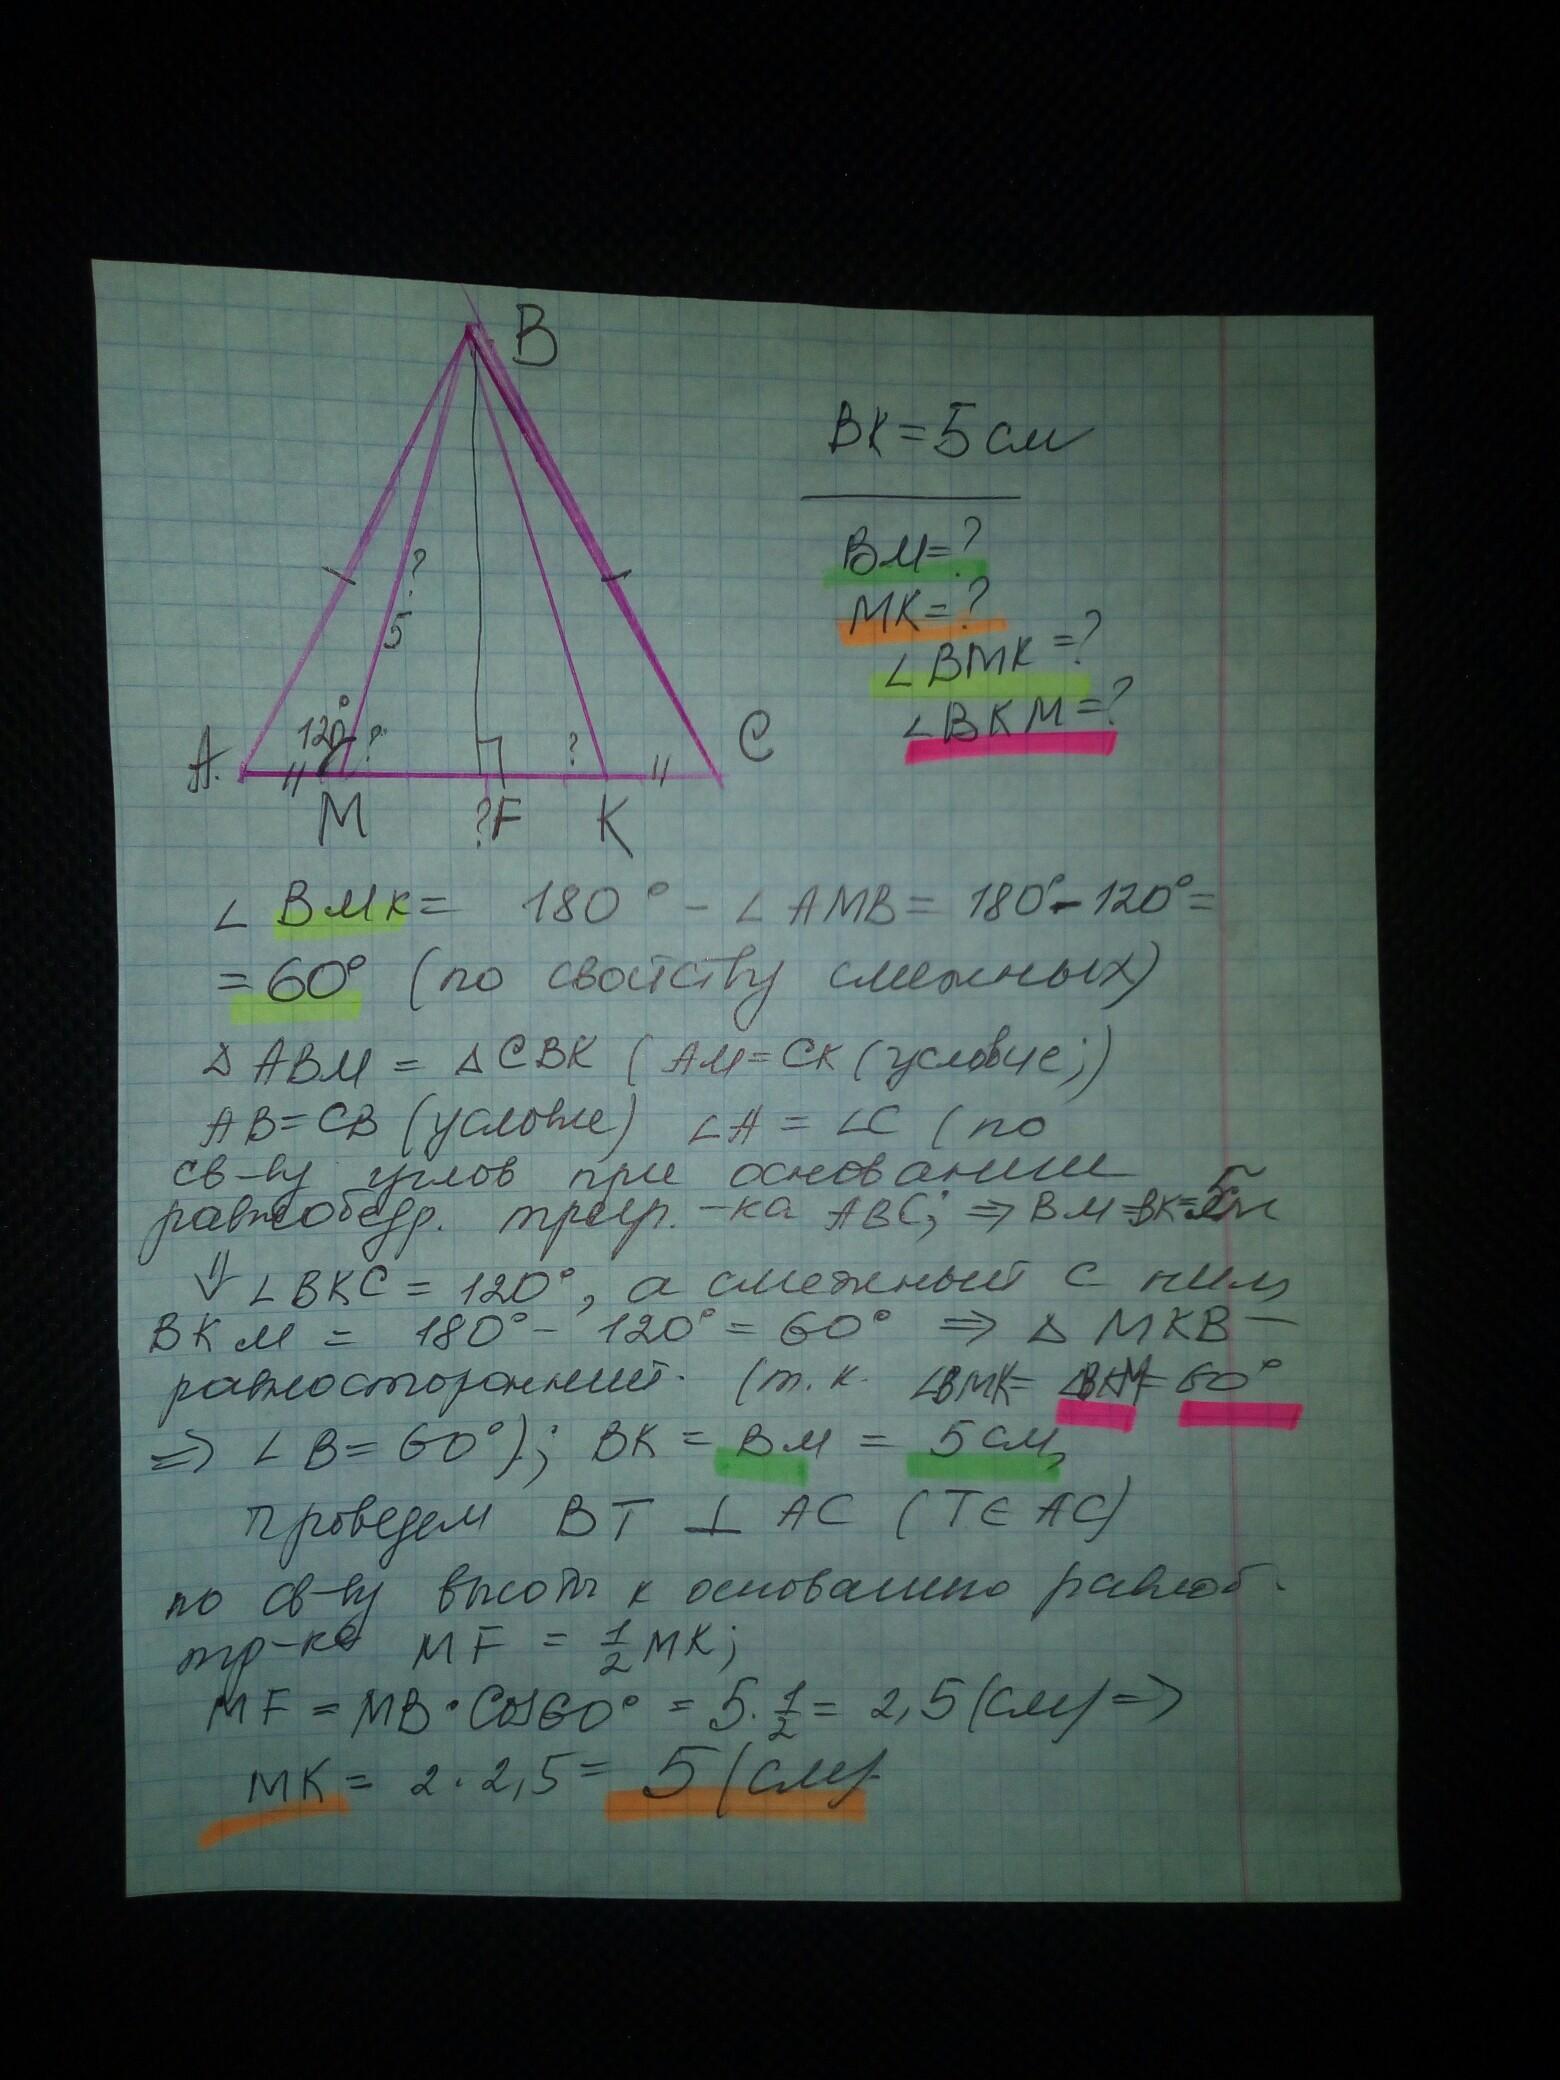 B
BK = 5 см
BM = ?
MK = ?
∠ BMK = ?
∠ BKM = ?
?
5
120°
?
?
A
C
M
?F
K
∠ BMK = 180° - ∠ AMB = 180° - 120° =
= 60° (по свойству смежных)
Δ ABM = Δ CBK ( AM = CK (условие;)
AB = CB (условие) ∠A = ∠C (по
св-ву углов при основании
равнобедр. треуг. -ка ABC; ⇒ BM = BK = 5см
⇓ ∠ BKC = 120°, а смежный с ним
BKM = 180° - 120° = 60° ⇒ Δ MKB —
равносторонний. (т.к. ∠BMK = ∠BKM = 60°
⇒ ∠ B = 60°); BK = BM = 5 см,
Проведем BT ⊥ AC ( T ∈ AC)
по св-ву высоты к основанию равноб.
тр-ка MF = 1/2 MK;
MF = MB · cos60° = 5 · 1/2 = 2,5 (см) ⇒
MK = 2 · 2,5 = 5 (см).